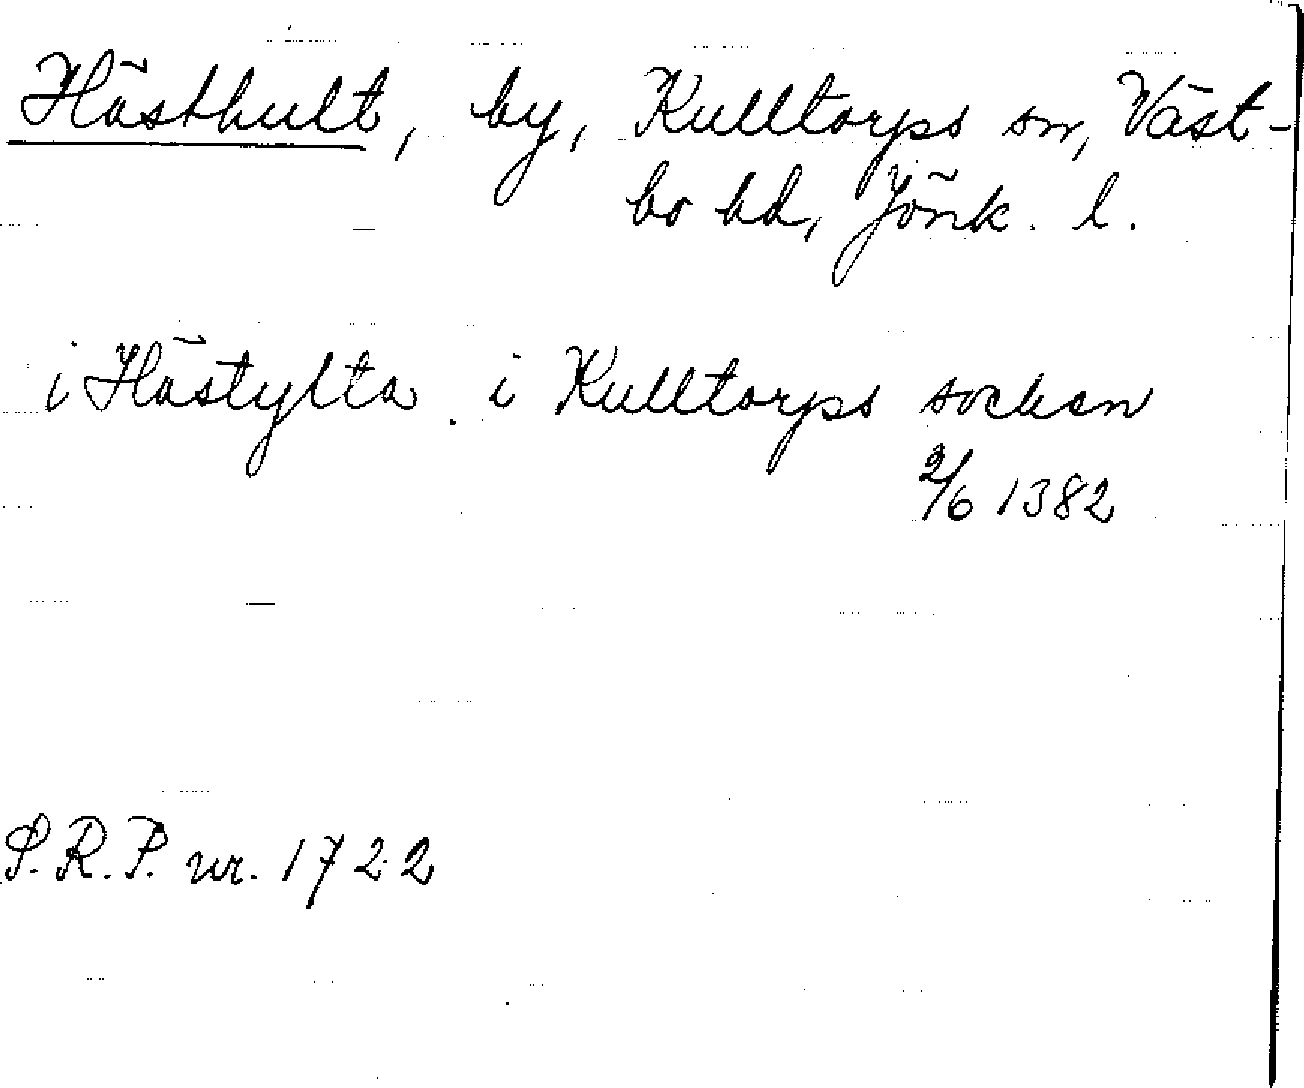 Hästhult, by, Kulltorps sn, Väst-
bo hd, Jönk. l.
i Hästylta. i Kulltorps socken
2/6 1382
S.R.P. nr. 1722